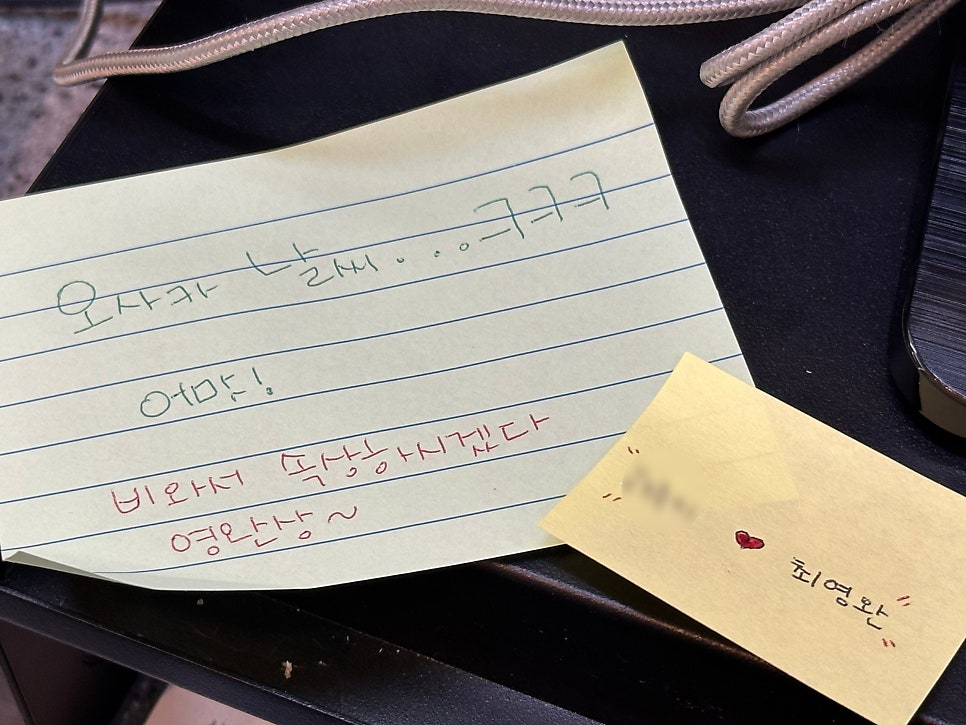 오사카 날씨...ㅋㅋㅋ
어마!
비와서 속상하시겠다
영완상~
" "
♥ 최영완 "